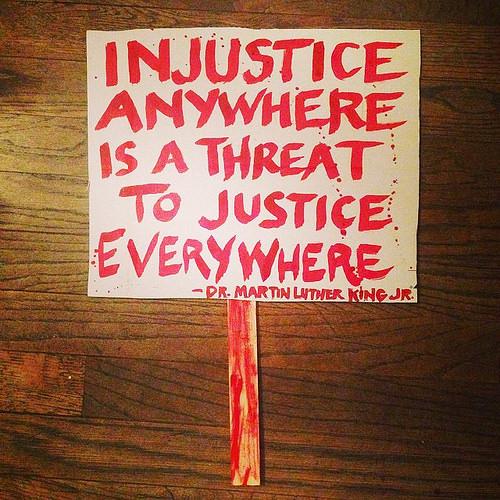 INJUSTICE
ANYWHERE
IS A THREAT
TO JUSTICE
EVERYWHERE
- DR. MARTIN LUTHER KING JR.